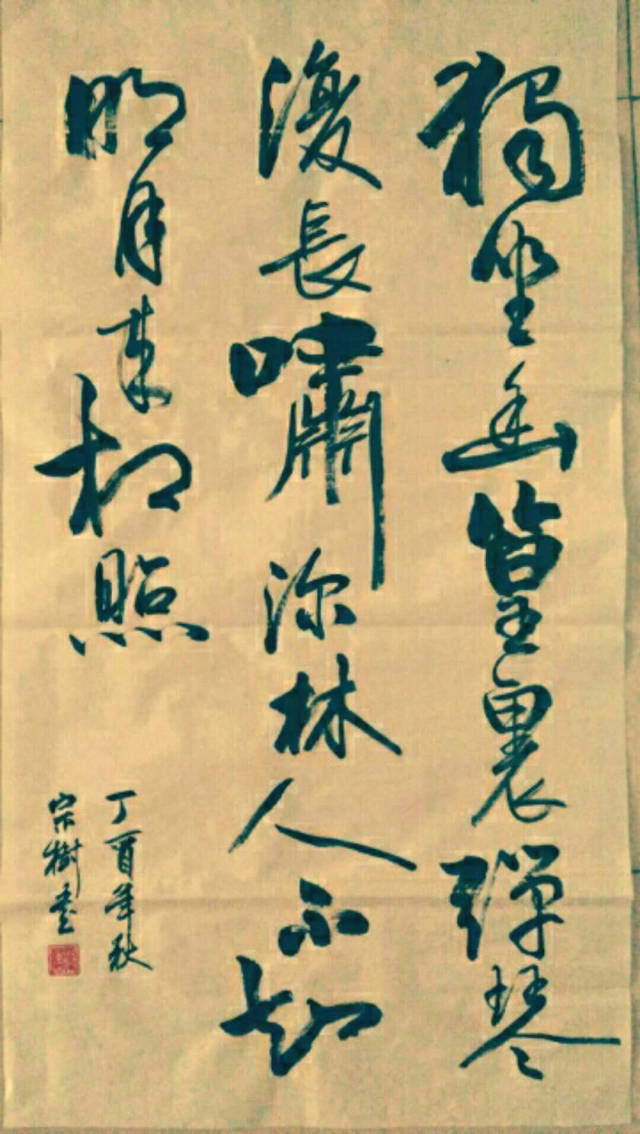 獨坐幽篁裏彈琴
復長嘯深林人不知
明月來相照
丁酉年秋
宗樹書